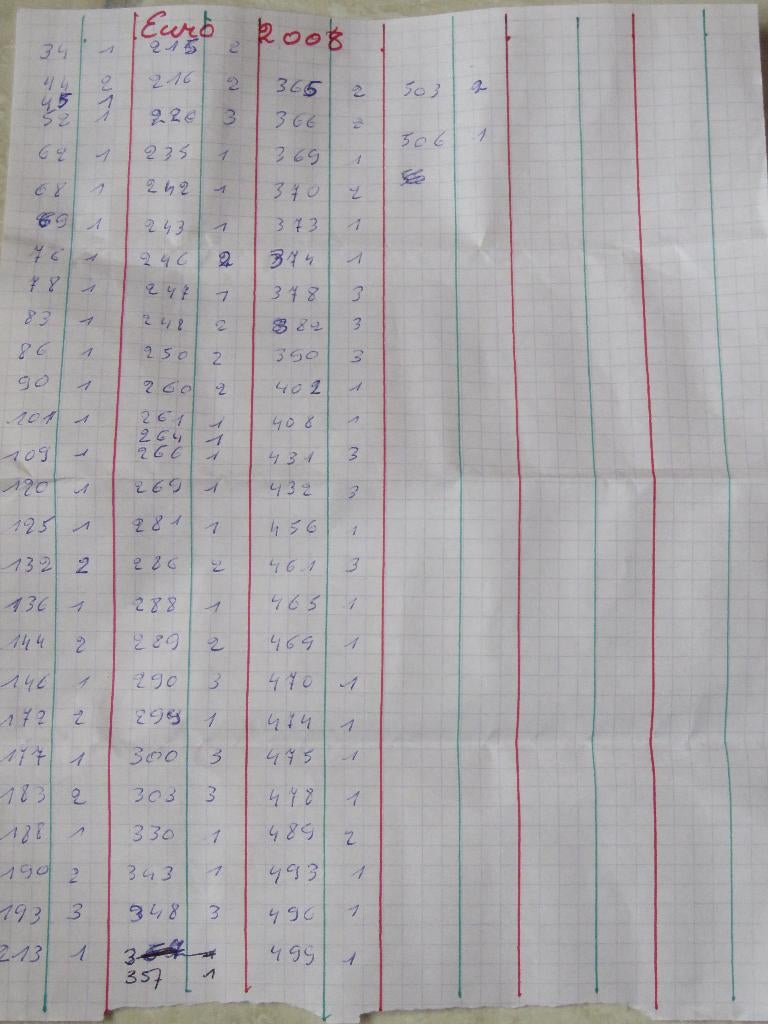 Euro 2008
34 1
44 2
45 1
52 1
62 1
68 1
69 1
76 1
78 1
83 1
86 1
90 1
101 1
109 1
120 1
125 1
132 2
136 1
144 2
146 1
172 2
177 1
183 2
188 1
190 2
193 3
213 1
215 2
216 2
226 3
235 1
242 1
243 1
246 2
247 1
248 2
250 2
260 2
261 1
264 1
266 1
269 1
281 1
286 2
288 1
289 2
290 3
299 1
300 3
303 3
330 1
343 1
348 3
357 1
365 2
366 2
369 1
370 2
373 1
374 1
378 3
382 3
390 3
402 1
408 1
431 3
432 3
456 1
461 3
465 1
469 1
470 1
474 1
475 1
478 1
489 2
493 1
496 1
499 1
503 2
506 1